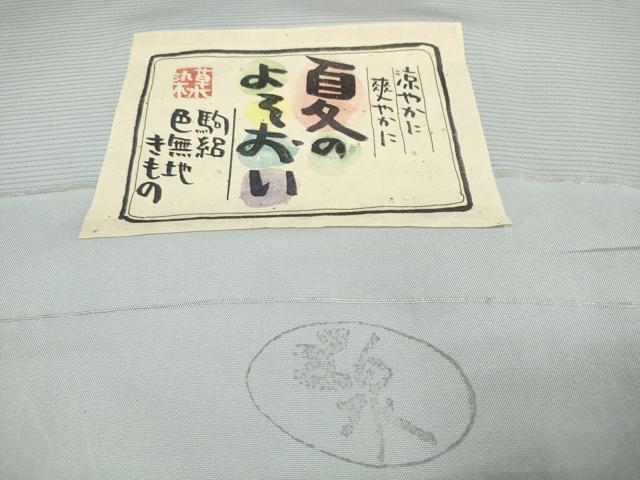 涼やかに
爽やかに
夏の
よそおい
駒絽
色無地
きもの
草木染